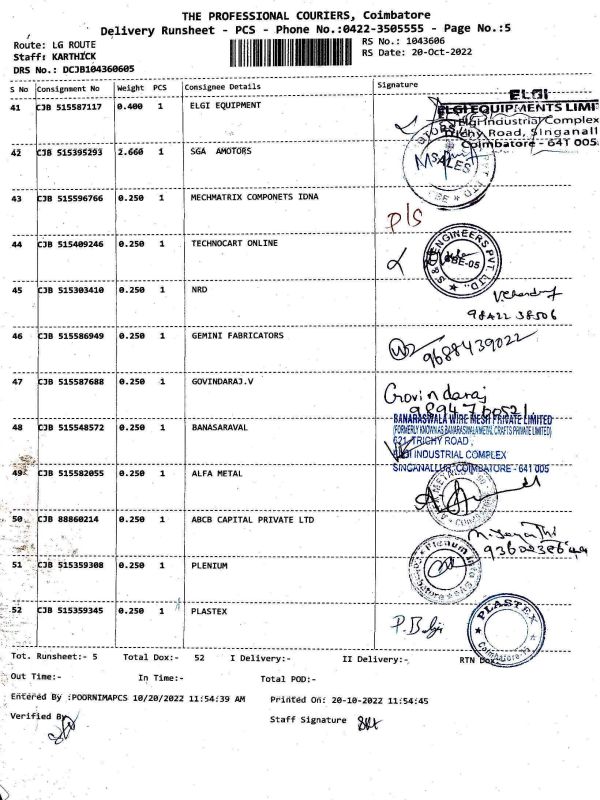 THE PROFESSIONAL COURIERS, Coimbatore
Delivery Runsheet - PCS - Phone No.:0422-3505555 - Page No.:5
Route: LG ROUTE
Staff: KARTHICK
DRS No.: DCJB104360605
RS No.: 1043606
RS Date: 20-Oct-2022
S No Consignment No Weight PCS Consignee Details Signature
41 CJB 515587117 0.400 1 ELGI EQUIPMENT
ELGI
ELGI EQUIPMENTS LIMI
Elgi Industrial Complex
Trichy Road, Singanall
Coimbatore - 641 005
42 CJB 515395293 2.660 1 SGA AMOTORS
SALES
43 CJB 515596766 0.250 1 MECHMATRIX COMPONETS IDNA
P/S
44 CJB 515409246 0.250 1 TECHNOCART ONLINE
S & ENGINEERS PVT. LTD.,
CBE-05
45 CJB 515303410 0.250 1 NRD
98422 38506
46 CJB 515586949 0.250 1 GEMINI FABRICATORS
9688439022
47 CJB 515587688 0.250 1 GOVINDARAJ.V
Govindaraj
48 CJB 515548572 0.250 1 BANASARAVAL
BANARASWALA WIRE MESH PRIVATE LIMITED
(FORMERLY KNOWN AS BANARASWALA METAL CRAFTS PRIVATE LIMITED)
621, TRICHY ROAD,
ELGI INDUSTRIAL COMPLEX
SINGANALLUR, COIMBATORE - 641 005
49 CJB 515582055 0.250 1 ALFA METAL
50 CJB 88860214 0.250 1 ABCB CAPITAL PRIVATE LTD
51 CJB 515359308 0.250 1 PLENIUM
52 CJB 515359345 0.250 1 PLASTEX
P. Balji
PLASTEX
Tot. Runsheet:- 5 Total Dox:- 52 I Delivery:- II Delivery:- RTN Dox
Out Time:- In Time:- Total POD:-
Entered By :POORNIMAPCS 10/20/2022 11:54:39 AM Printed On: 20-10-2022 11:54:45
Verified By
Staff Signature